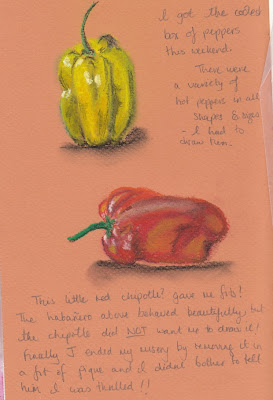 I got the coolest
box of peppers
this weekend.
There were
a variety of
hot peppers in all
shapes & sizes
- I had to
draw them.
This little red chipotle? gave me fits!
The habañero above behaved beautifully, but
the chipotle did NOT want me to draw it!
Finally I ended my misery by removing it in
a fit of pique and I didn't bother to tell
him I was thrilled!!